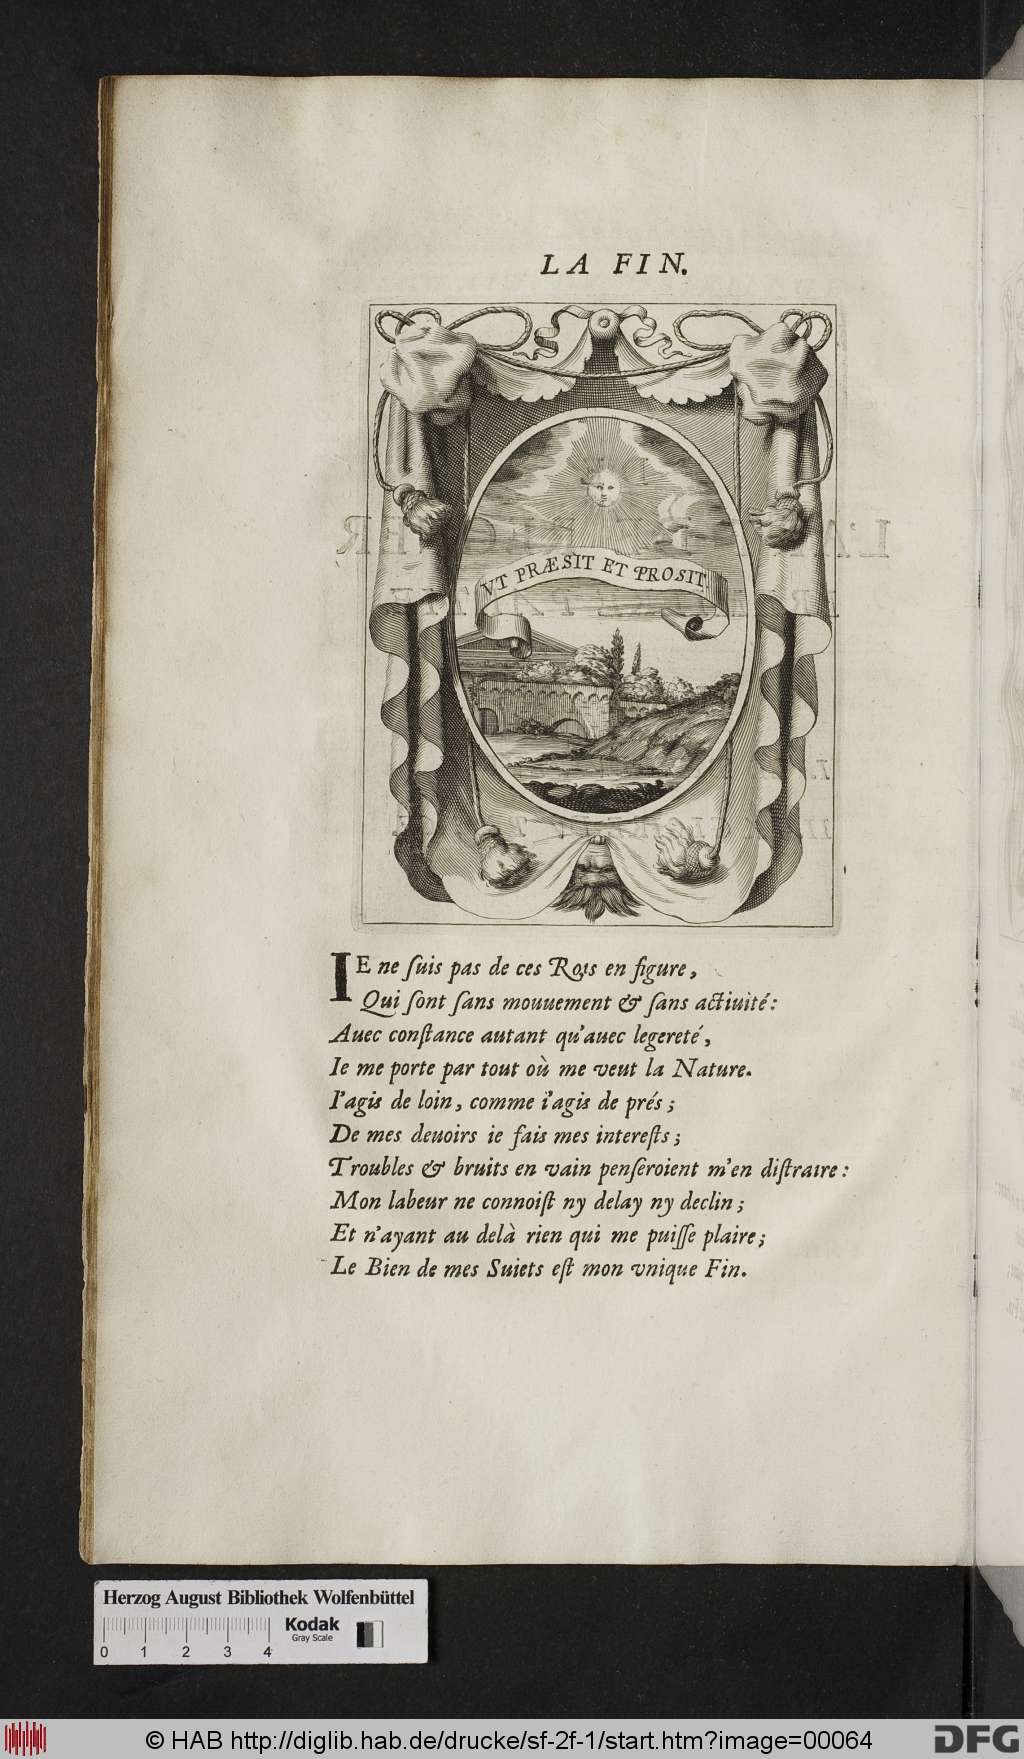 LA FIN.
VT PRÆSIT ET PROSIT.
IE ne ſuis pas de ces Rois en figure,
Qui ſont ſans mouuement & ſans actiuité:
Auec conſtance autant qu'auec legereté,
Ie me porte par tout où me veut la Nature.
I'agis de loin, comme i'agis de prés;
De mes deuoirs ie fais mes intereſts;
Troubles & bruits en vain penſeroient m'en diſtraire:
Mon labeur ne connoiſt ny delay ny declin;
Et n'ayant au delà rien qui me puiſſe plaire;
Le Bien de mes Suiets eſt mon vnique Fin.
Herzog August Bibliothek Wolfenbüttel
Kodak
Gray Scale
0 1 2 3 4
© HAB http://diglib.hab.de/drucke/sf-2f-1/start.htm?image=00064
DFG